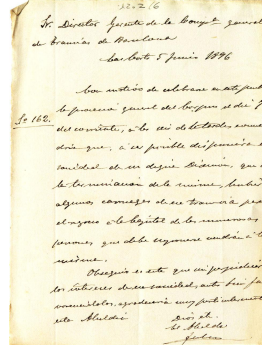 Sr. Director Gerente de la Compª. general
de Tranvias de Barcelona
5 Junio 1896
Con motivo de celebrarse en este pueblo
la procesion general del Corpus el dia
Nº 162. del corriente, a las seis de la tarde,
dria que, a ser posible dispusiera
sociedad de su digna Direccion, que a
la terminacion de la misma, hubiera
algunos carruages de su tranvia para
el regreso a la Capital de las numerosas
personas que debe suponerse vendrán á la
misma.
Obsequio es este que sin perjudicar
los intereses de esa sociedad, antes bien fa-
voreciendolos, agradeceria muy particularmente
esta Alcaldia
Dios etc.
El Alcalde